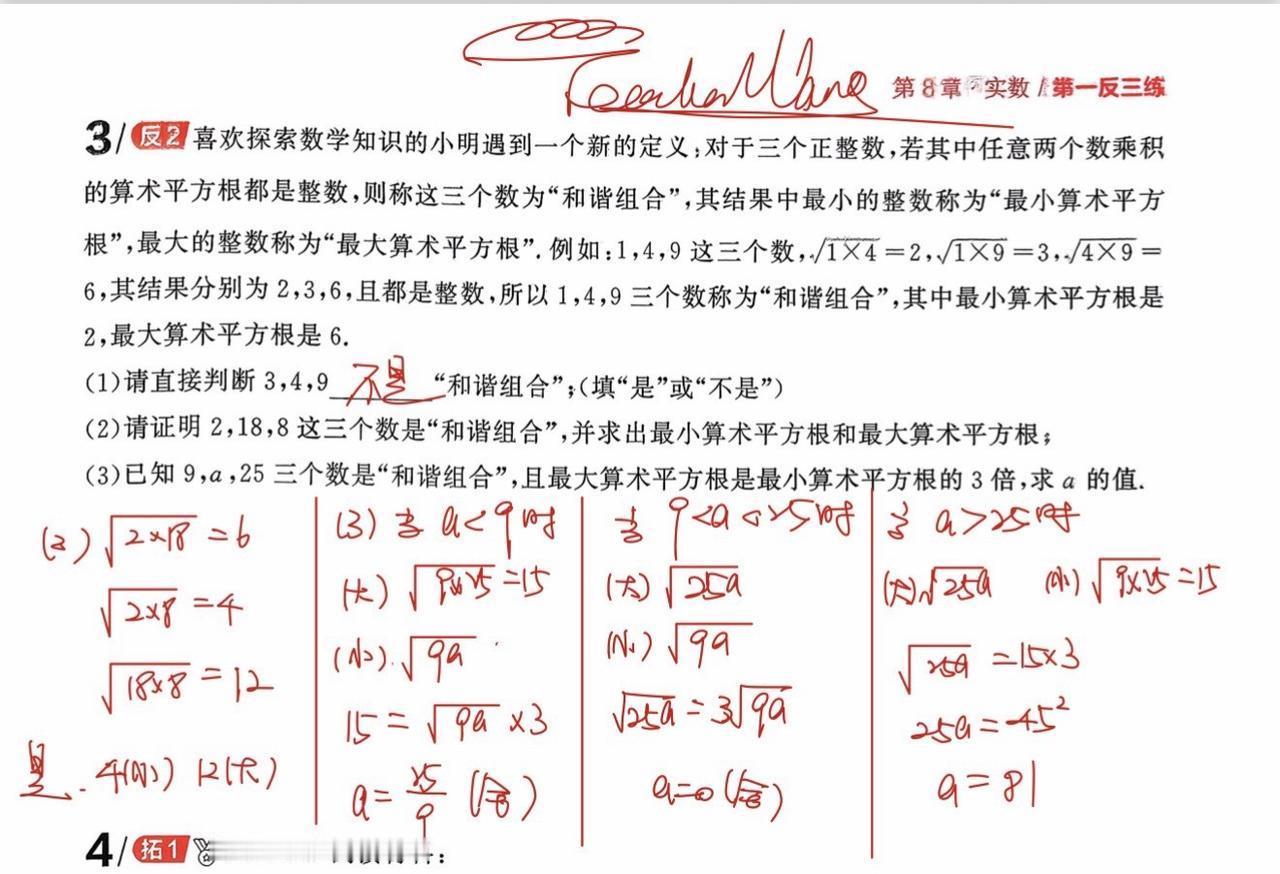 Teacher Wang
第8章 实数 / 第一反三练
3/ 反2 喜欢探索数学知识的小明遇到一个新的定义:对于三个正整数,若其中任意两个数乘积
的算术平方根都是整数,则称这三个数为“和谐组合”,其结果中最小的整数称为“最小算术平方
根”,最大的整数称为“最大算术平方根”. 例如:1,4,9 这三个数,√1×4=2,√1×9=3,√4×9=
6,其结果分别为 2,3,6,且都是整数,所以 1,4,9 三个数称为“和谐组合”,其中最小算术平方根是
2,最大算术平方根是 6.
(1)请直接判断 3,4,9 不是 “和谐组合”;(填“是”或“不是”)
(2)请证明 2,18,8 这三个数是“和谐组合”,并求出最小算术平方根和最大算术平方根;
(3)已知 9,a,25 三个数是“和谐组合”,且最大算术平方根是最小算术平方根的 3 倍,求 a 的值.
(2) √2×18 = 6
√2×8 = 4
√18×8 = 12
是. 4(小) 12(大)
(3) 当 a<9时
(大) √9×25 =15
(小). √9a
15 = √9a ×3
a = 25/9 (舍)
当 9<a<25时
(大) √25a
(小) √9a
√25a = 3√9a
a=0 (舍)
当 a>25时
(大) √25a (小) √9×25 =15
√25a =15×3
25a = 45²
a = 81
4/ 拓1